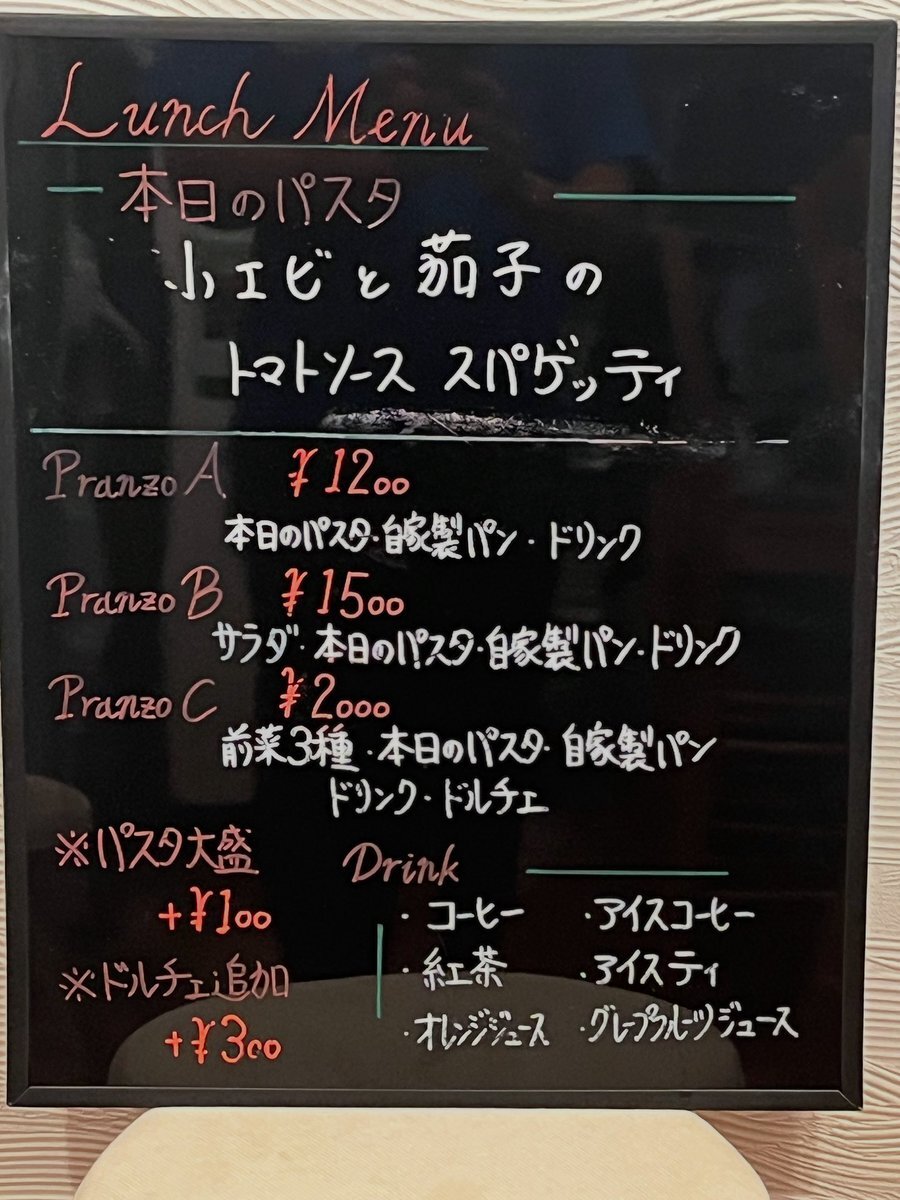 Lunch Menu
本日のパスタ
小エビと茄子の
トマトソース スパゲッティ
Pranzo A ¥1200
本日のパスタ・自家製パン・ドリンク
Pranzo B ¥1500
サラダ・本日のパスタ・自家製パン・ドリンク
Pranzo C ¥2000
前菜3種・本日のパスタ・自家製パン
ドリンク・ドルチェ
※パスタ大盛
+¥100
※ドルチェ追加
+¥300
Drink
・コーヒー ・アイスコーヒー
・紅茶 ・アイスティ
・オレンジジュース ・グレープフルーツジュース